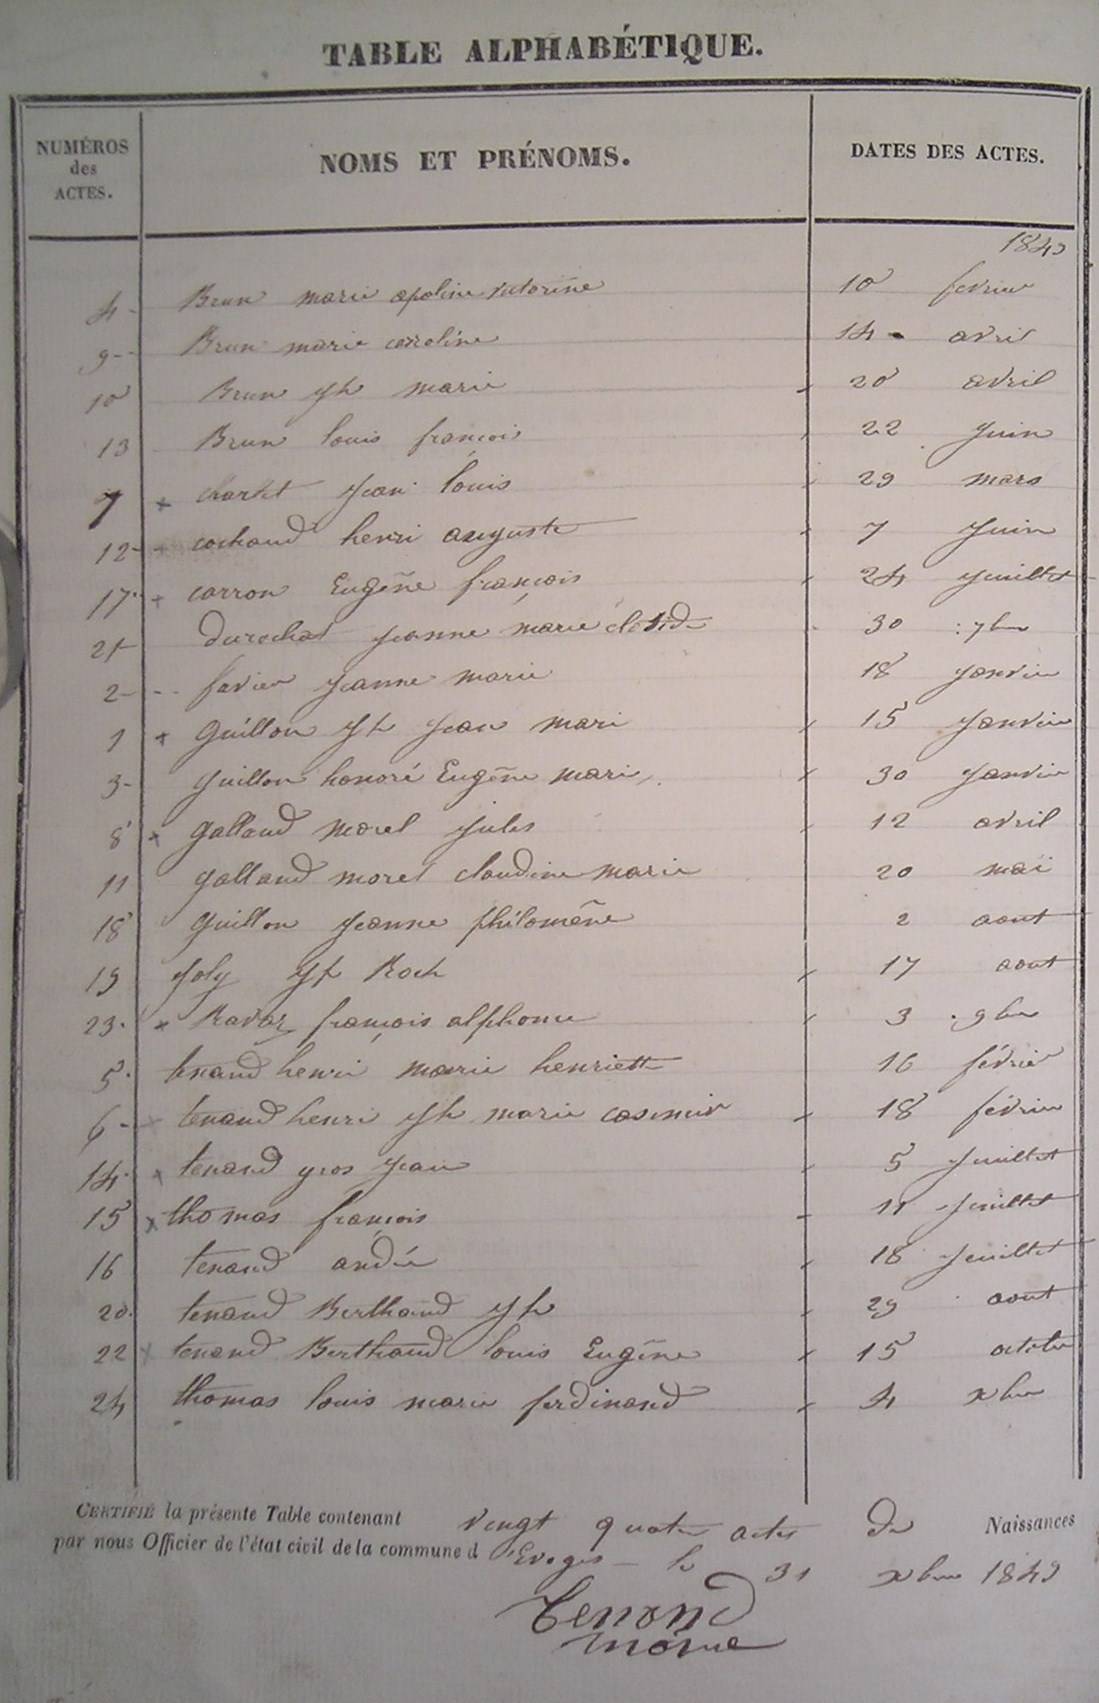 TABLE ALPHABÉTIQUE.
NUMÉROS des ACTES. NOMS ET PRÉNOMS. DATES DES ACTES.
4 - Brun marie apoline victorine 10 fevrier
9 -- Brun marie caroline 14 - avril
10 Brun jh marie 20 avril
13 Brun louis françois 22 juin
7 + charlet jean louis 29 mars
12 - cochaud henri auguste 7 juin
17 + carron Eugène françois 24 juillet
21 durochat jeanne marie 30 7bre
2 - favier jeanne marie 18 janvier
1 + guillon jh jean mari 15 janvier
3 - guillon honoré Eugène marie 30 janvier
8 + galland morel jules 12 avril
11 galland morel claudine marie 20 mai
18 guillon jeanne philomène 2 aout
19 joly jh Roch 17 aout
23 + Ravaz françois alphonse 3 9bre
5 tenand henri marie henriette 16 février
6 - tenand henri jh marie casimir 18 février
14 + tenand gros jean 5 juillet
15 x thomas françois 11 juillet
16 tenand andré 18 juillet
20 tenand Berthaud jh 29 aout
22 x tenand Berthaud louis Eugène 15 octobre
24 thomas louis marie ferdinand 4 xbre
CERTIFIÉ la présente Table contenant vingt quatre actes de Naissances
par nous Officier de l'état civil de la commune d'Evoges - le 31 xbre 1843
Tenand